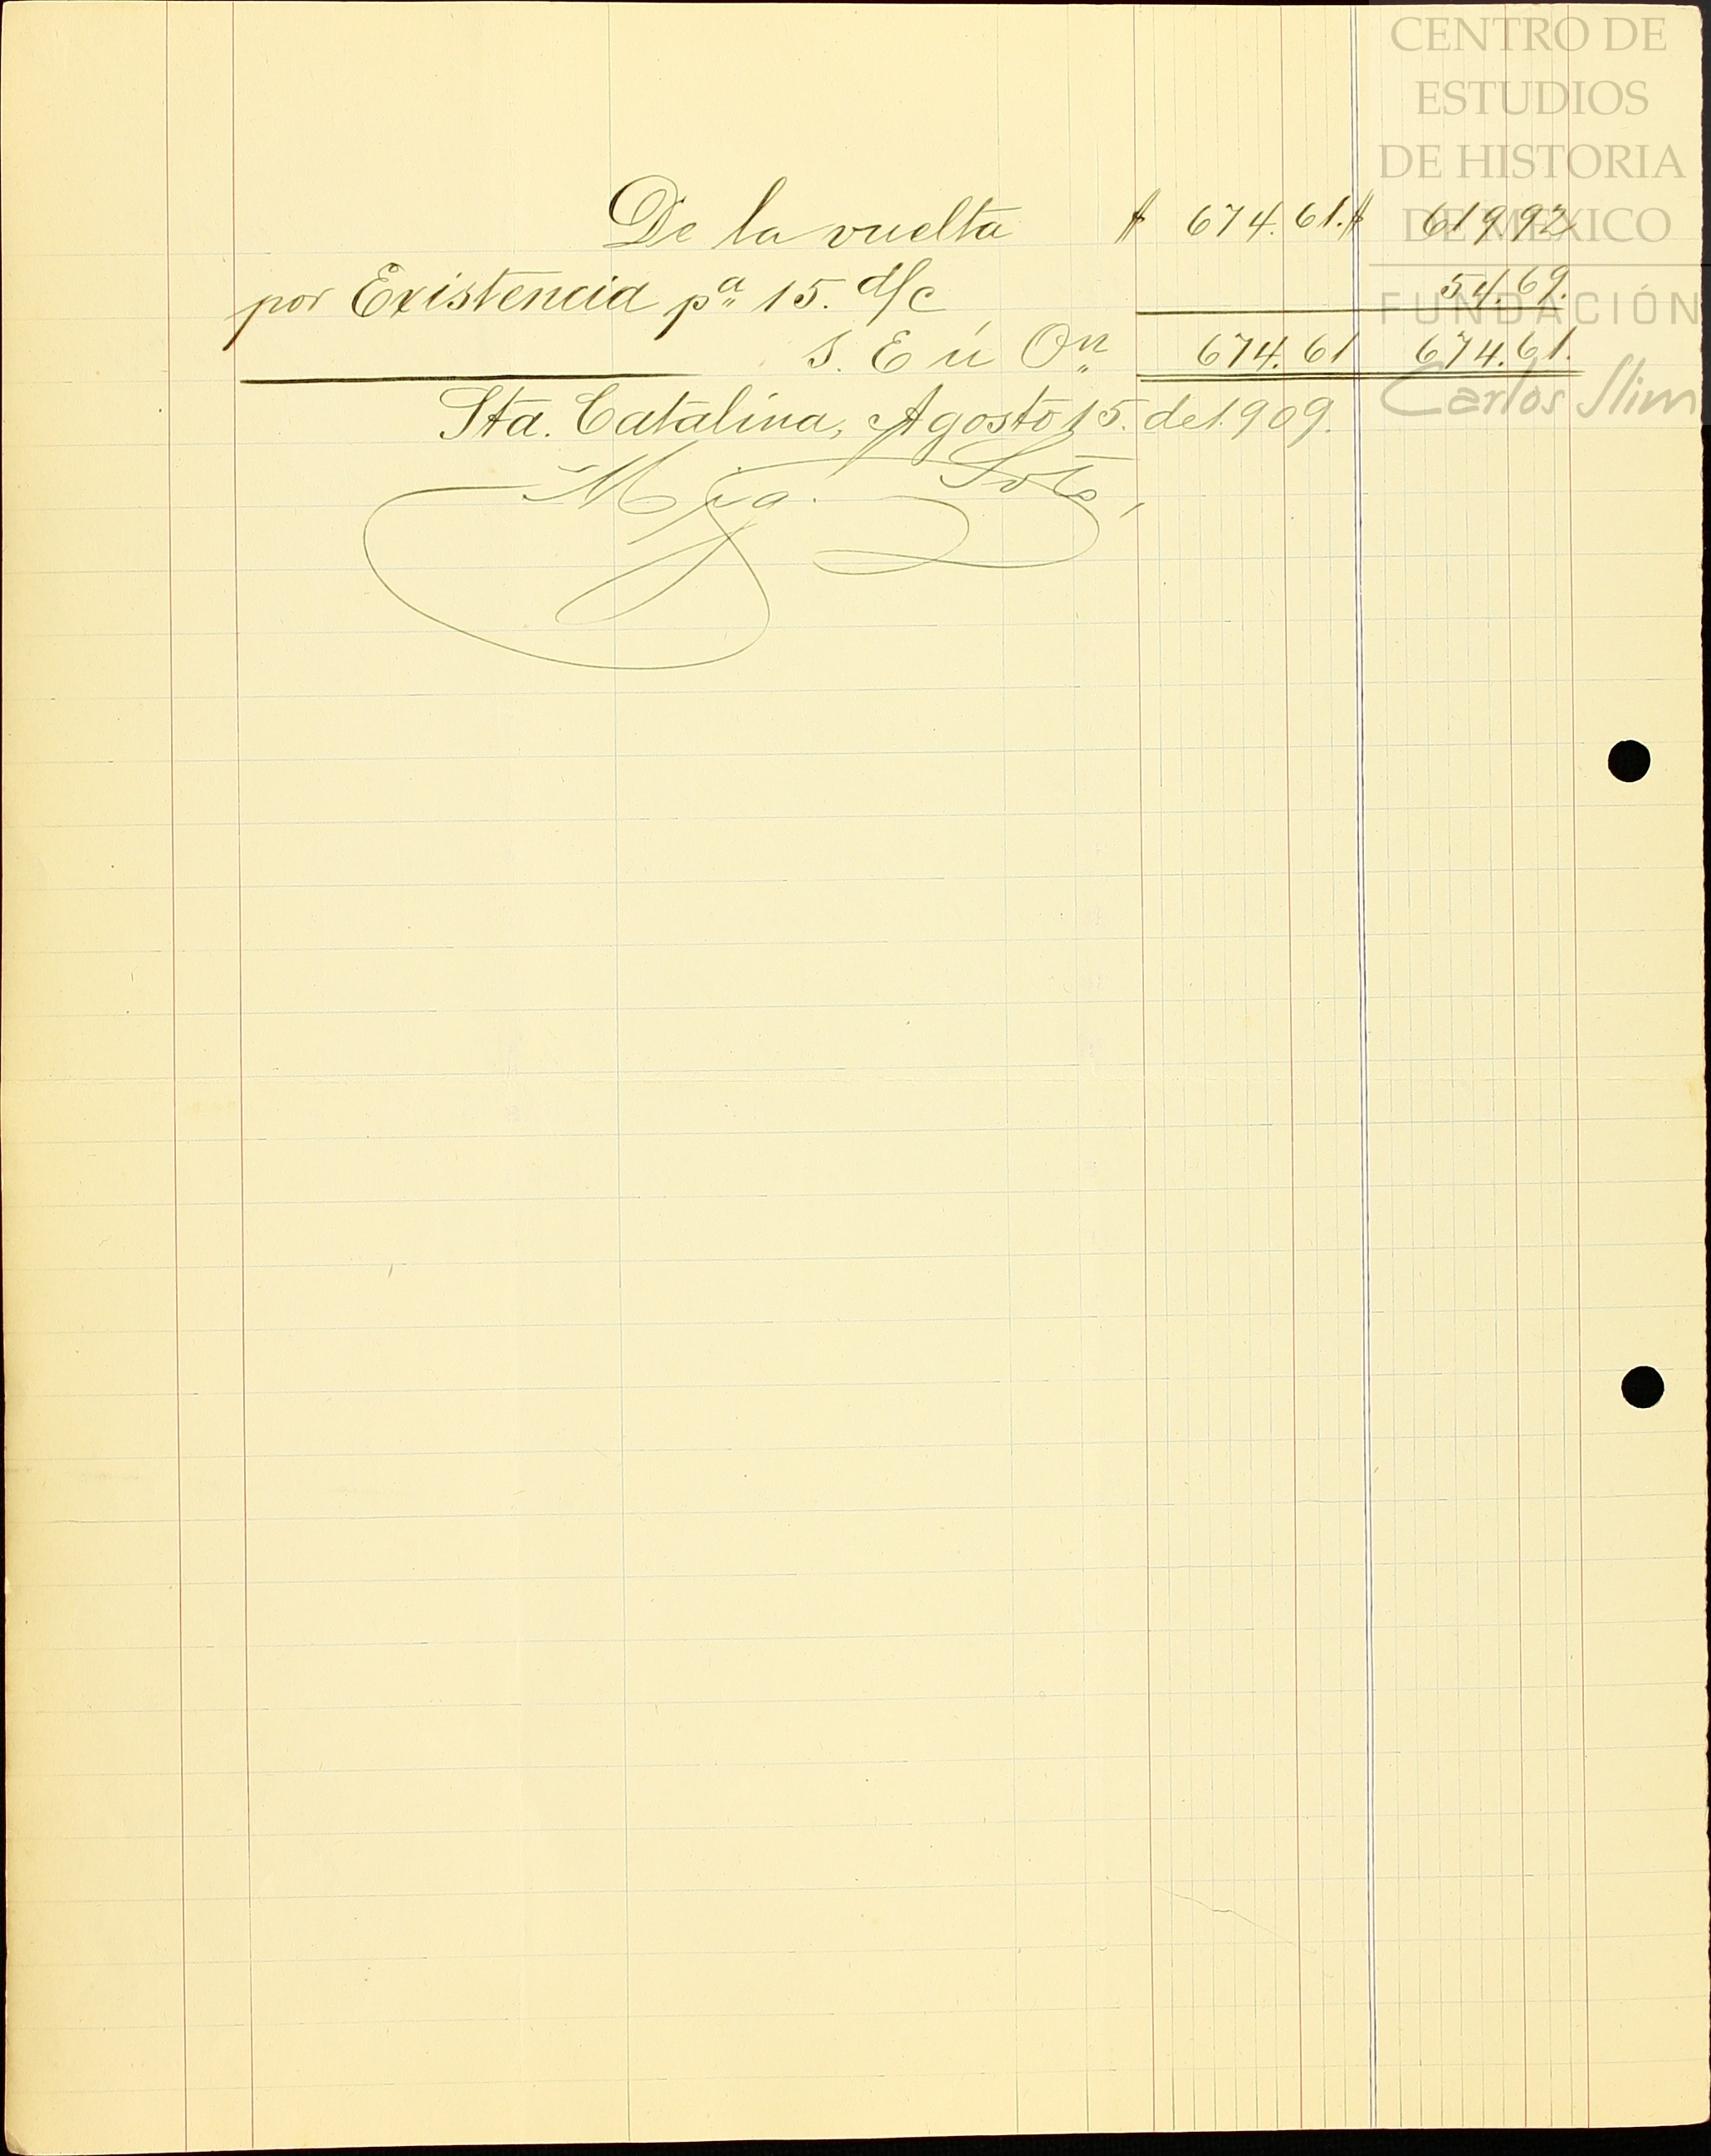 CENTRO DE
ESTUDIOS
DE HISTORIA
DE MÉXICO
FUNDACIÓN
Carlos Slim
De la vuelta $ 674.61. $ 619 92
por Existencia pª 15. d/c 54.69.
S. E ú On 674.61 674.61.
Sta. Catalina, Agosto 15. de 1909.
Soto,